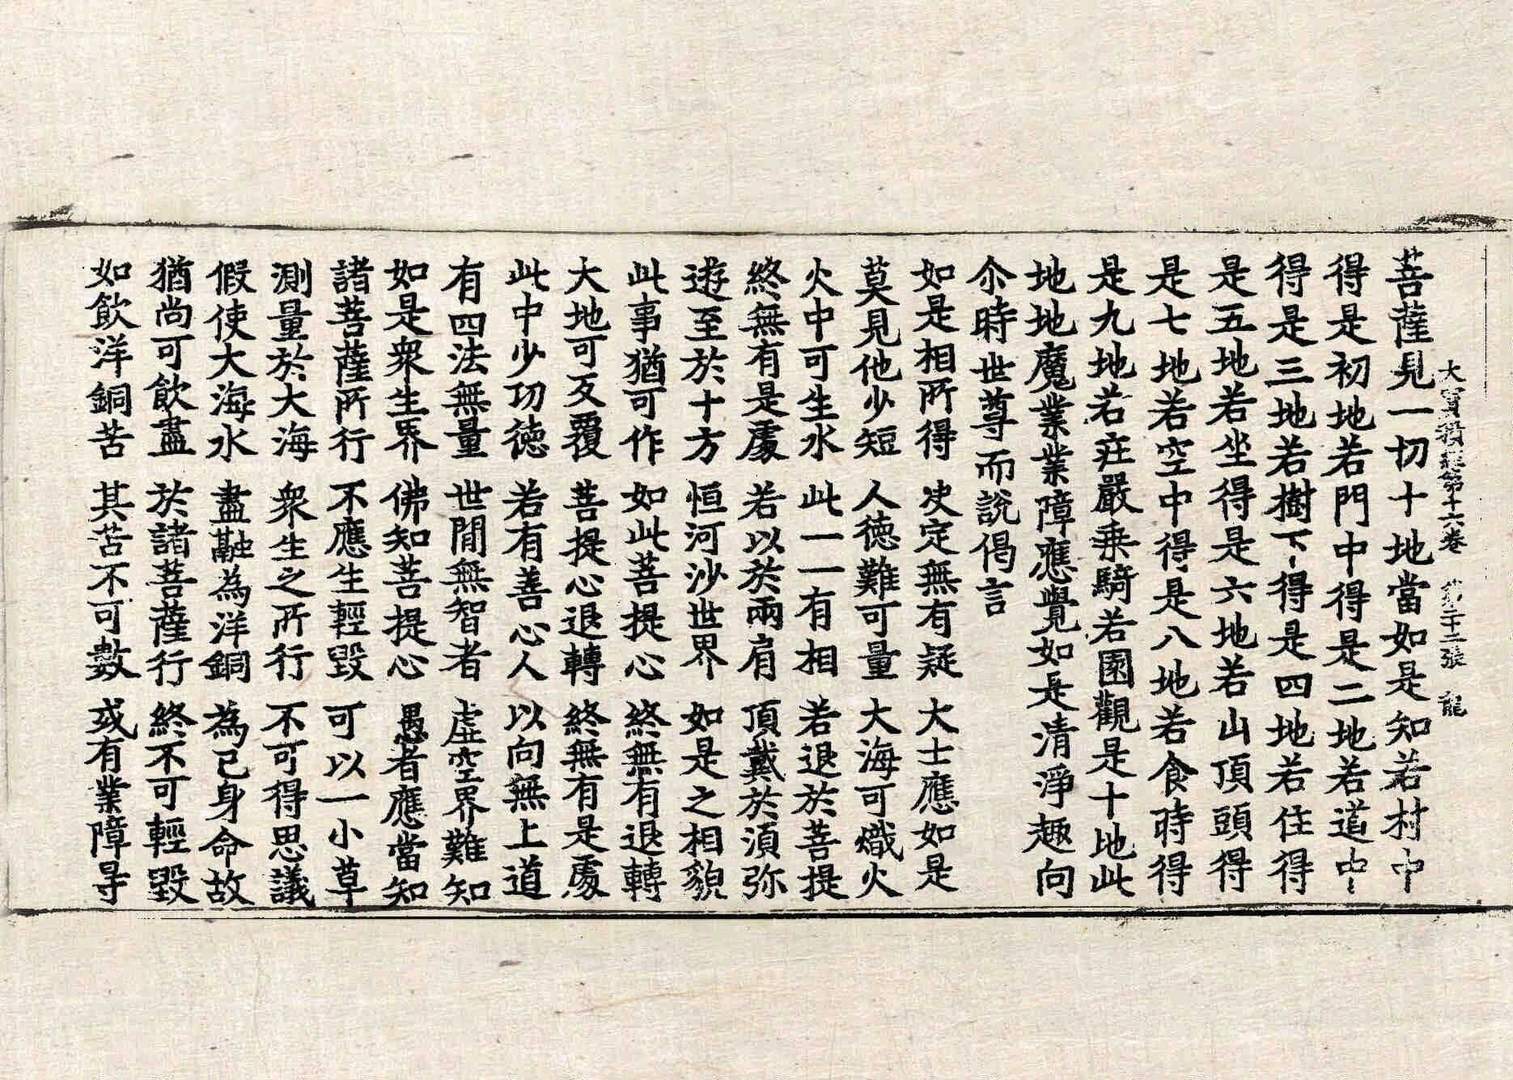 大寶積經第十六卷 第二十二張 龍
菩薩見一切十地當如是知若村中
得是初地若門中得是二地若道中
得是三地若樹下得是四地若住得
是五地若坐得是六地若山頂頭得
是七地若空中得是八地若食時得
是九地若庄嚴乗騎若園觀是十地此
地地魔業業障應覺如是清淨趣向
尒時世尊而說偈言
如是相所得 决定無有疑 大士應如是
莫見他少短 人徳難可量 大海可熾火
火中可生水 此一一有相 若退於菩提
終無有是處 若以於兩肩 頂戴於湏弥
遊至於十方 恒河沙世界 如是之相貌
此事猶可作 如此菩提心 終無有退轉
大地可反覆 菩提心退轉 終無有是處
此中少功徳 若有善心人 以向無上道
有四法無量 世間無智者 虛空界難知
如是衆生界 佛知菩提心 愚者應當知
諸菩薩所行 不應生輕毀 可以一小草
測量於大海 衆生之所行 不可得思議
假使大海水 盡融為洋銅 為已身命故
猶尚可飲盡 於諸菩薩行 終不可輕毀
如飲洋銅苦 其苦不可數 或有業障㝵